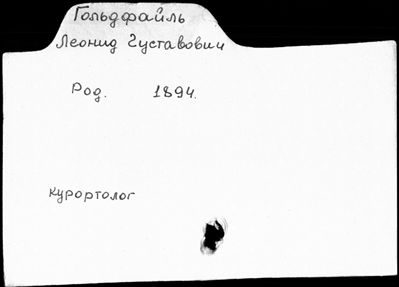 Гольдфайль
Леонид Густавович
Род. 1894.
курортолог